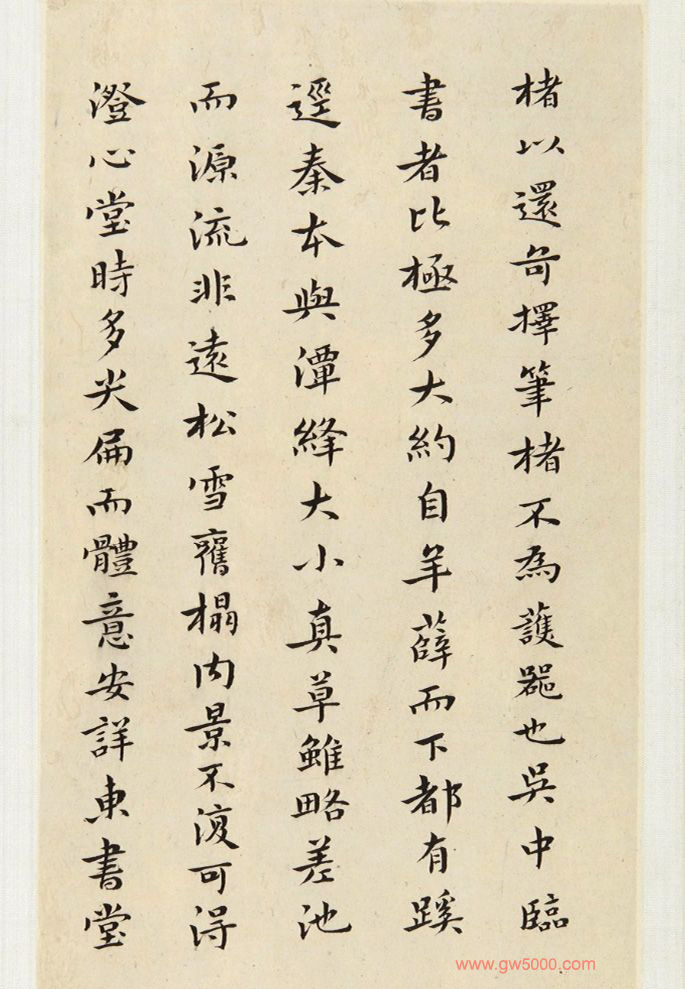 楮以還奇擇筆楮不為護器也吳中臨
書者比極多大約自羊薛而下都有蹊
逕秦本與潭絳大小真草雖略差池
而源流非遠松雪舊榻內景不復可得
澄心堂時多尖扁而體意安詳東書堂
www.gw5000.com